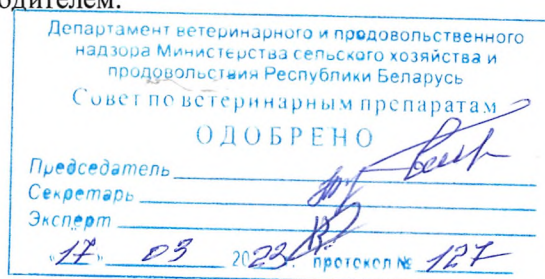 одителем.
Департамент ветеринарного и продовольственного
надзора Министерства сельского хозяйства и
продовольствия Республики Беларусь
Совет по ветеринарным препаратам
ОДОБРЕНО
Председатель
Секретарь
Эксперт
«17» 03 2023 протокол № 127